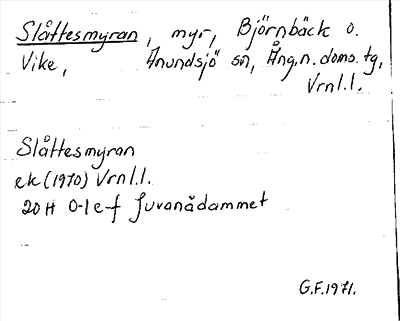 Slåttesmyran, myr, Björnbäck o.
Vike, Anundsjö sn, Ång.n.doms.tg,
Vrnl.l.
Slåttesmyran
ek (1970) Vrnl.l.
20 H 0-1 e-f Juvanådammet
G.F.1971.